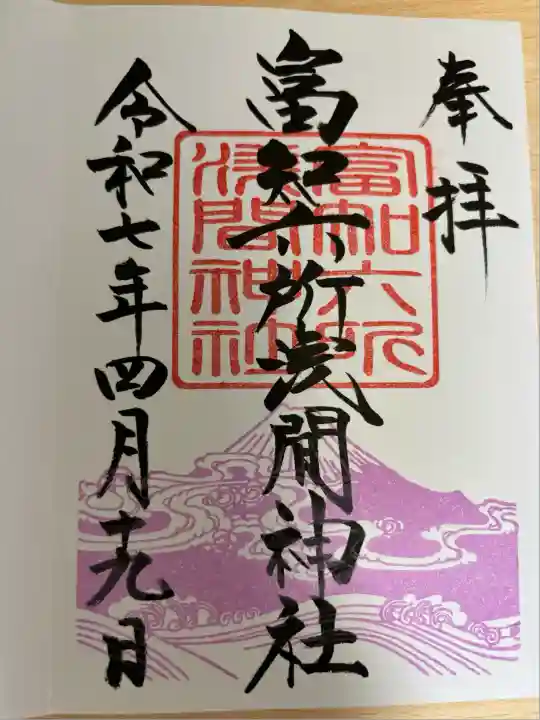 奉拝
富知六所浅間神社
富知六所
浅間神社
令和七年四月十九日